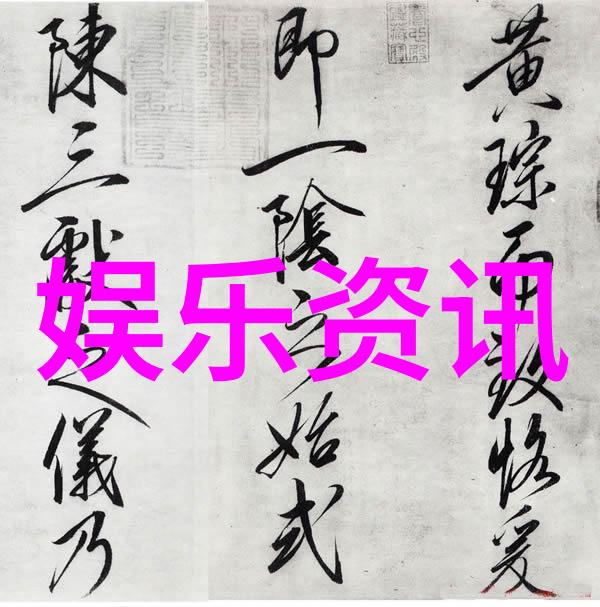 黃琮而致恪爰
即一陰之始式
陳三獻之儀乃
娱乐资讯